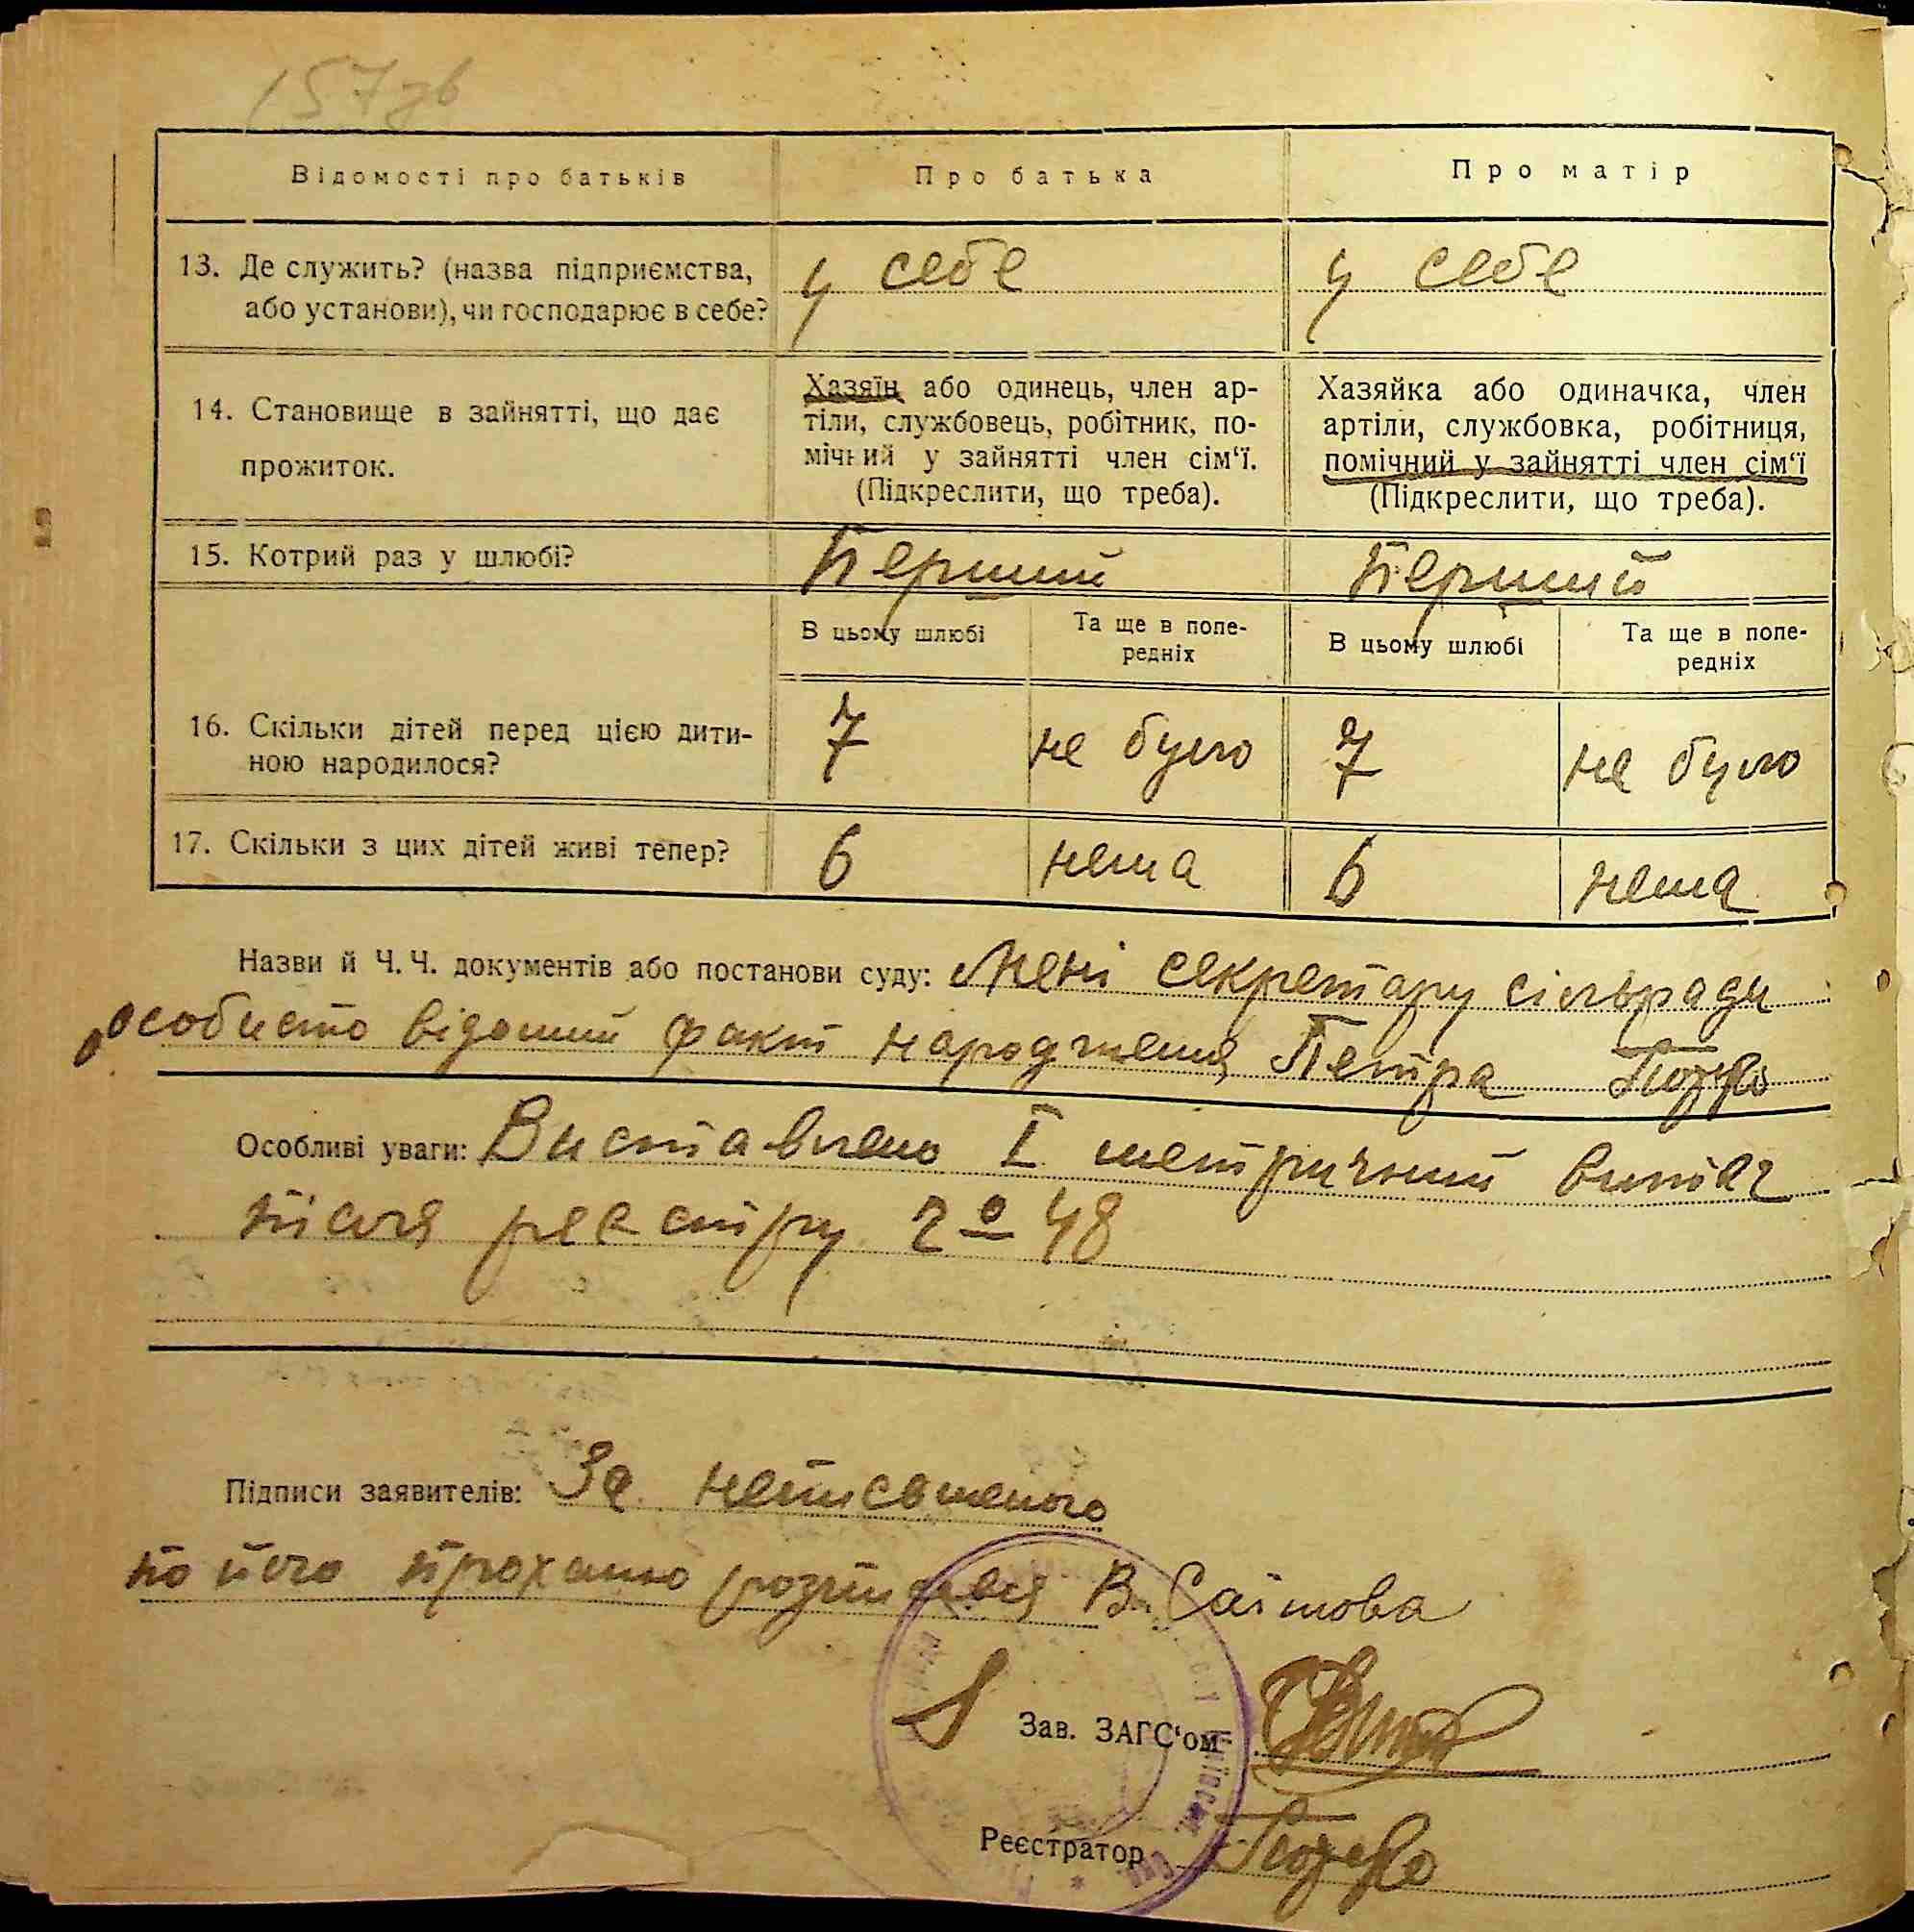 157 зв
Відомості про батьків Про батька Про матір
13. Де служить? (назва підприємства, або установи), чи господарює в себе? у себе у себе
14. Становище в зайнятті, що дає прожиток.
Хазяїн або одинець, член ар-
тіли, службовець, робітник, по-
мічний у зайнятті член сім'ї.
(Підкреслити, що треба).
Хазяйка або одиначка, член
артіли, службовка, робітниця,
помічний у зайнятті член сім'ї
(Підкреслити, що треба).
15. Котрий раз у шлюбі? Перший Перший
В цьому шлюбі Та ще в попе-редніх В цьому шлюбі Та ще в попе-редніх
16. Скільки дітей перед цією дити-ною народилося? 7 не було 7 не було
17. Скільки з цих дітей живі тепер? 6 нема 6 нема
Назви й Ч.Ч. документів або постанови суду: Мені секретару сільради
особисто відомий факт народження Петра
Особливі уваги: Виставлено I метричний випис
після реєстру 48
Підписи заявителів: За неписьменого
по його проханню розписався В. Саїтова
Зав. ЗАГС'ом
Реєстратор